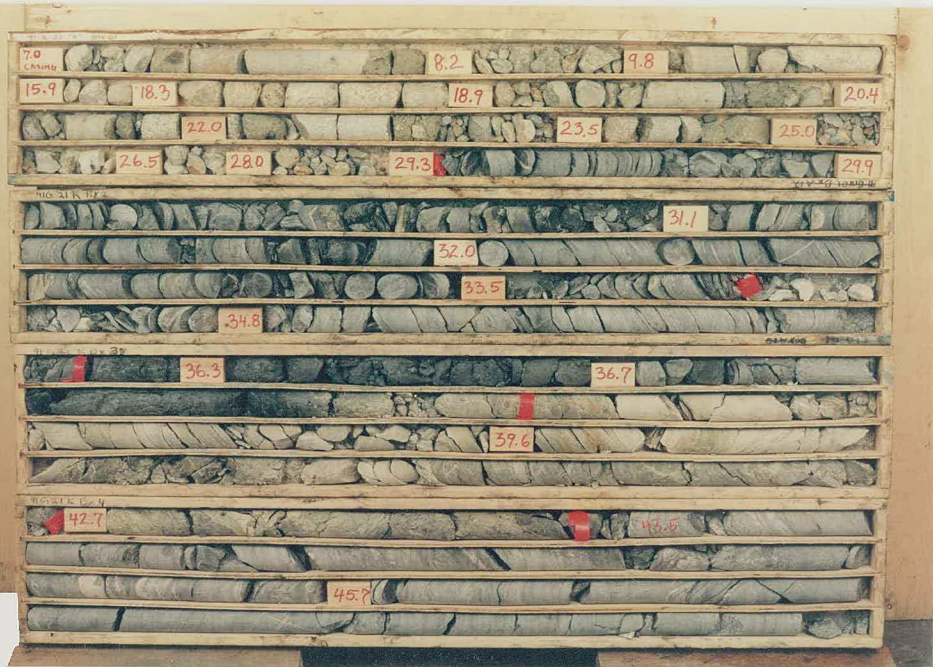 7.0
CASING
8.2
9.8
15.9
18.3
18.9
20.4
22.0
23.5
25.0
26.5
28.0
29.3
29.9
31.1
32.0
33.5
34.8
36.3
36.7
39.6
42.7
43.5
45.7